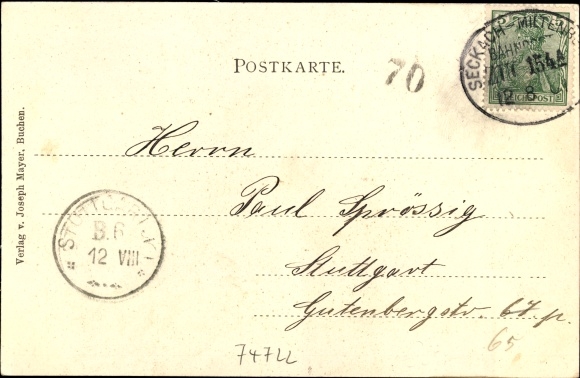 POSTKARTE.
70
SECKACH - MILTENBE
BAHNPOST
ZUG 1544
12 8
REICHSPOST
Herrn
Paul Sprössig
Stuttgart
Gutenbergstr. 67. p.
65
STUTTGART
B.6
12 VIII
Verlag v. Joseph Mayer, Buchen.
747LL